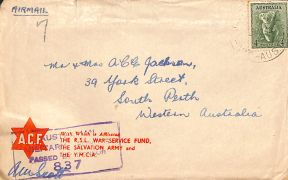 AIRMAIL
AUSTRALIA
Mr & Mrs A.C.G. Jackson,
39 York Street,
South Perth
Western Australia
A.C.F.
With which is affiliated
THE R.S.L. WAR SERVICE FUND,
THE SALVATION ARMY and
THE Y.M.C.A.
PASSED
837